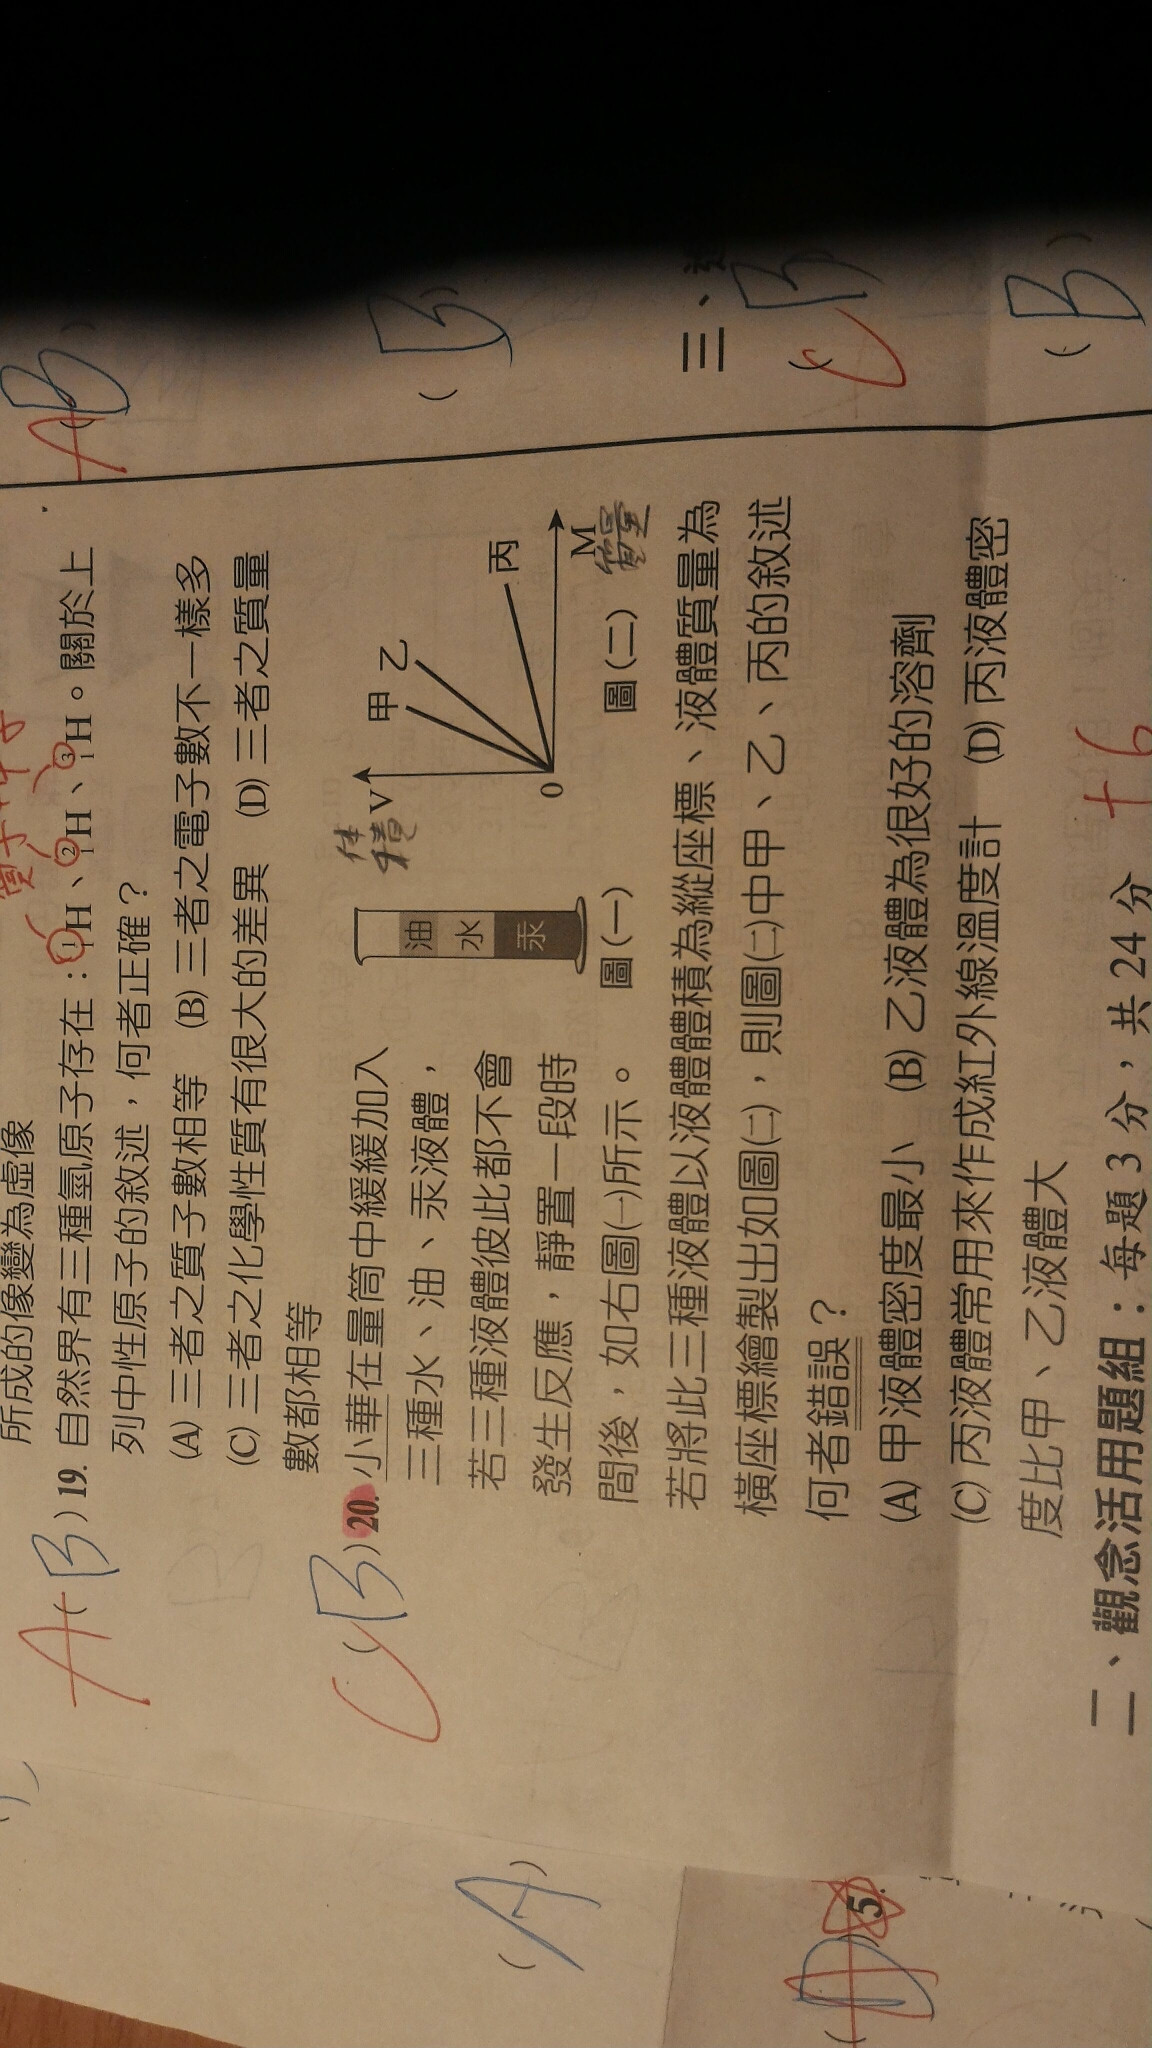 所成的像變為虛像
(B) 19. 自然界有三種氫原子存在：¹₁H、²₁H、³₁H。關於上
列中性原子的敘述，何者正確？
(A) 三者之質子數相等 (B) 三者之電子數不一樣多
(C) 三者之化學性質有很大的差異 (D) 三者之質量
數都相等
A
(B) 20. 小華在量筒中緩緩加入
三種水、油、汞液體，
若三種液體彼此都不會
發生反應，靜置一段時
間後，如右圖㈠所示。
C
油
水
汞
圖(一)
體積
V
甲
乙
丙
0
M
質量
圖(二)
若將此三種液體以液體體積為縱座標、液體質量為
橫座標繪製出如圖㈡，則圖㈡中甲、乙、丙的敘述
何者錯誤？
(A) 甲液體密度最小 (B) 乙液體為很好的溶劑
(C) 丙液體常用來作成紅外線溫度計 (D) 丙液體密
度比甲、乙液體大
二、觀念活用題組：每題 3 分，共 24 分
+6
(A)
(D) 5.
A
(B)
(B)
三、
C
(B)
(B)